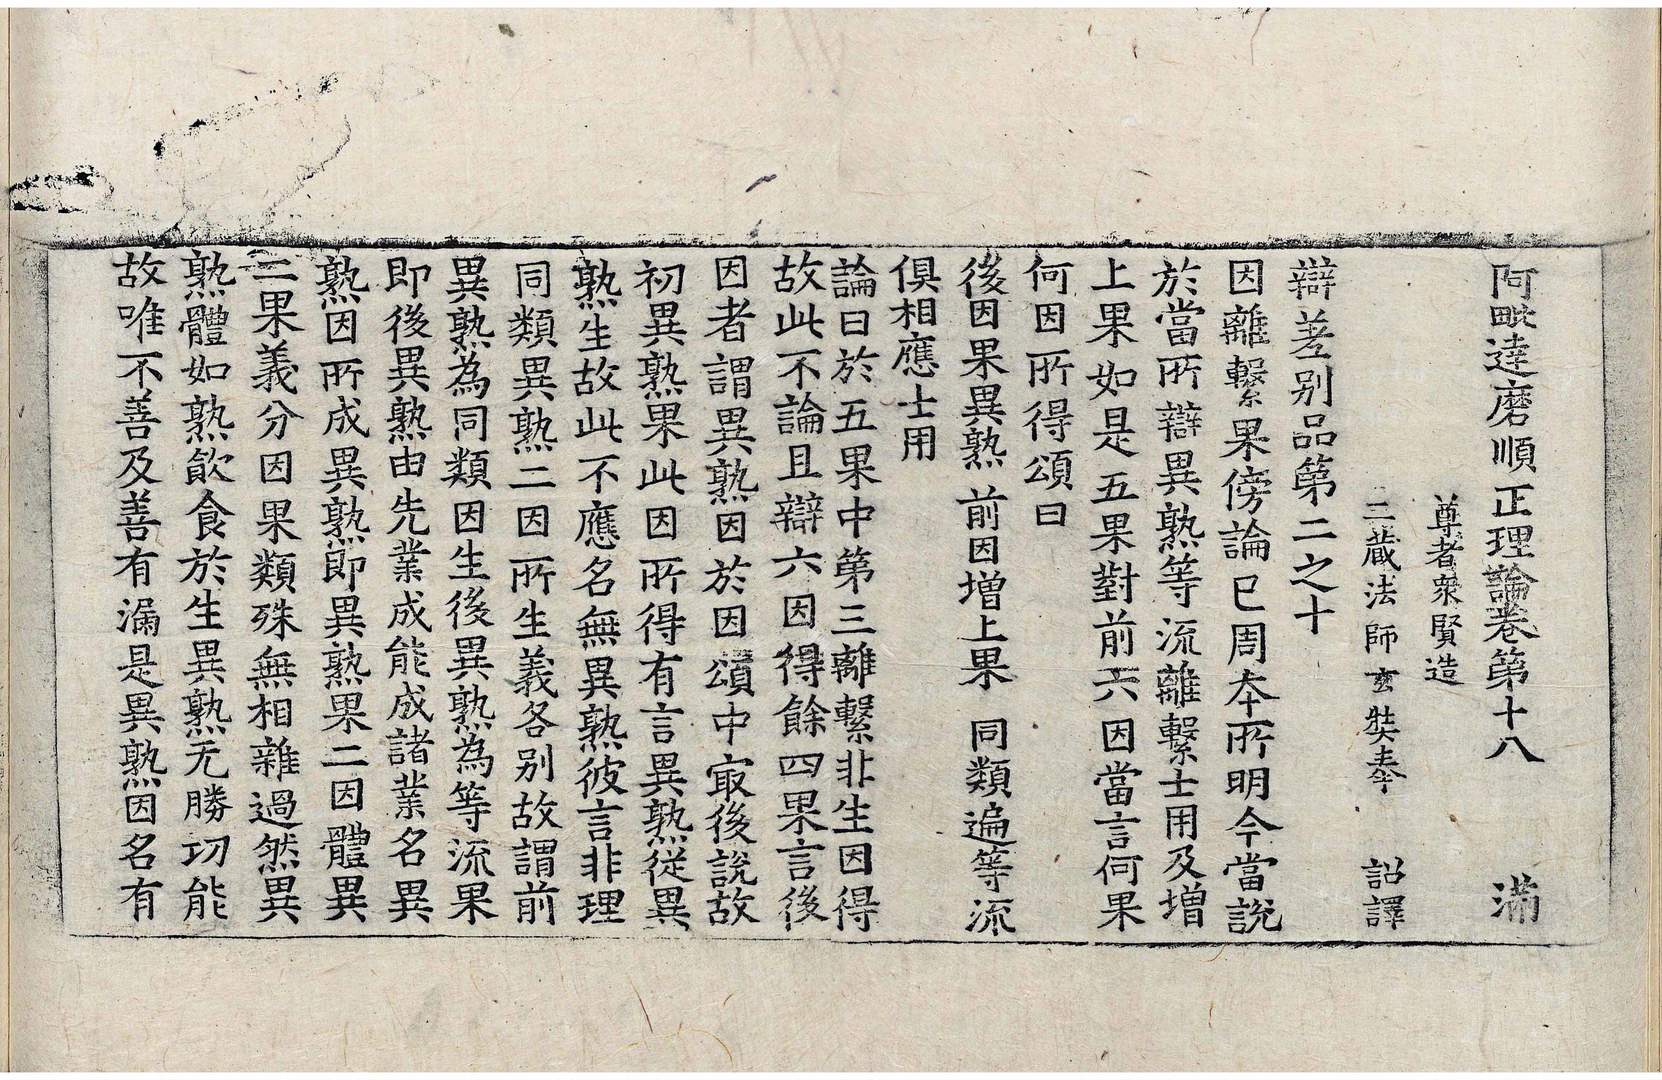 阿毗達磨順正理論卷第十八 滿
尊者衆賢造
三藏法師玄奘奉 詔譯
辯差别品第二之十
因離繫果傍論已周夲所明今當説
於當所辯異熟等流離繫士用及增
上果如是五果對前六因當言何果
何因所得頌曰
後因果異熟 前因增上果 同類遍等流
俱相應士用
論曰於五果中第三離繫非生因得
故此不論且辯六因得餘四果言後
因者謂異熟因於因頌中㝡後説故
初異熟果此因所得有言異熟從異
熟生故此不應名無異熟彼言非理
同類異熟二因所生義各别故謂前
異熟為同類因生後異熟為等流果
即後異熟由先業成能成諸業名異
熟因所成異熟即異熟果二因體異
二果義分因果類殊無相雜過然異
熟體如熟飲食於生異熟无勝功能
故唯不善及善有漏是異熟因名有